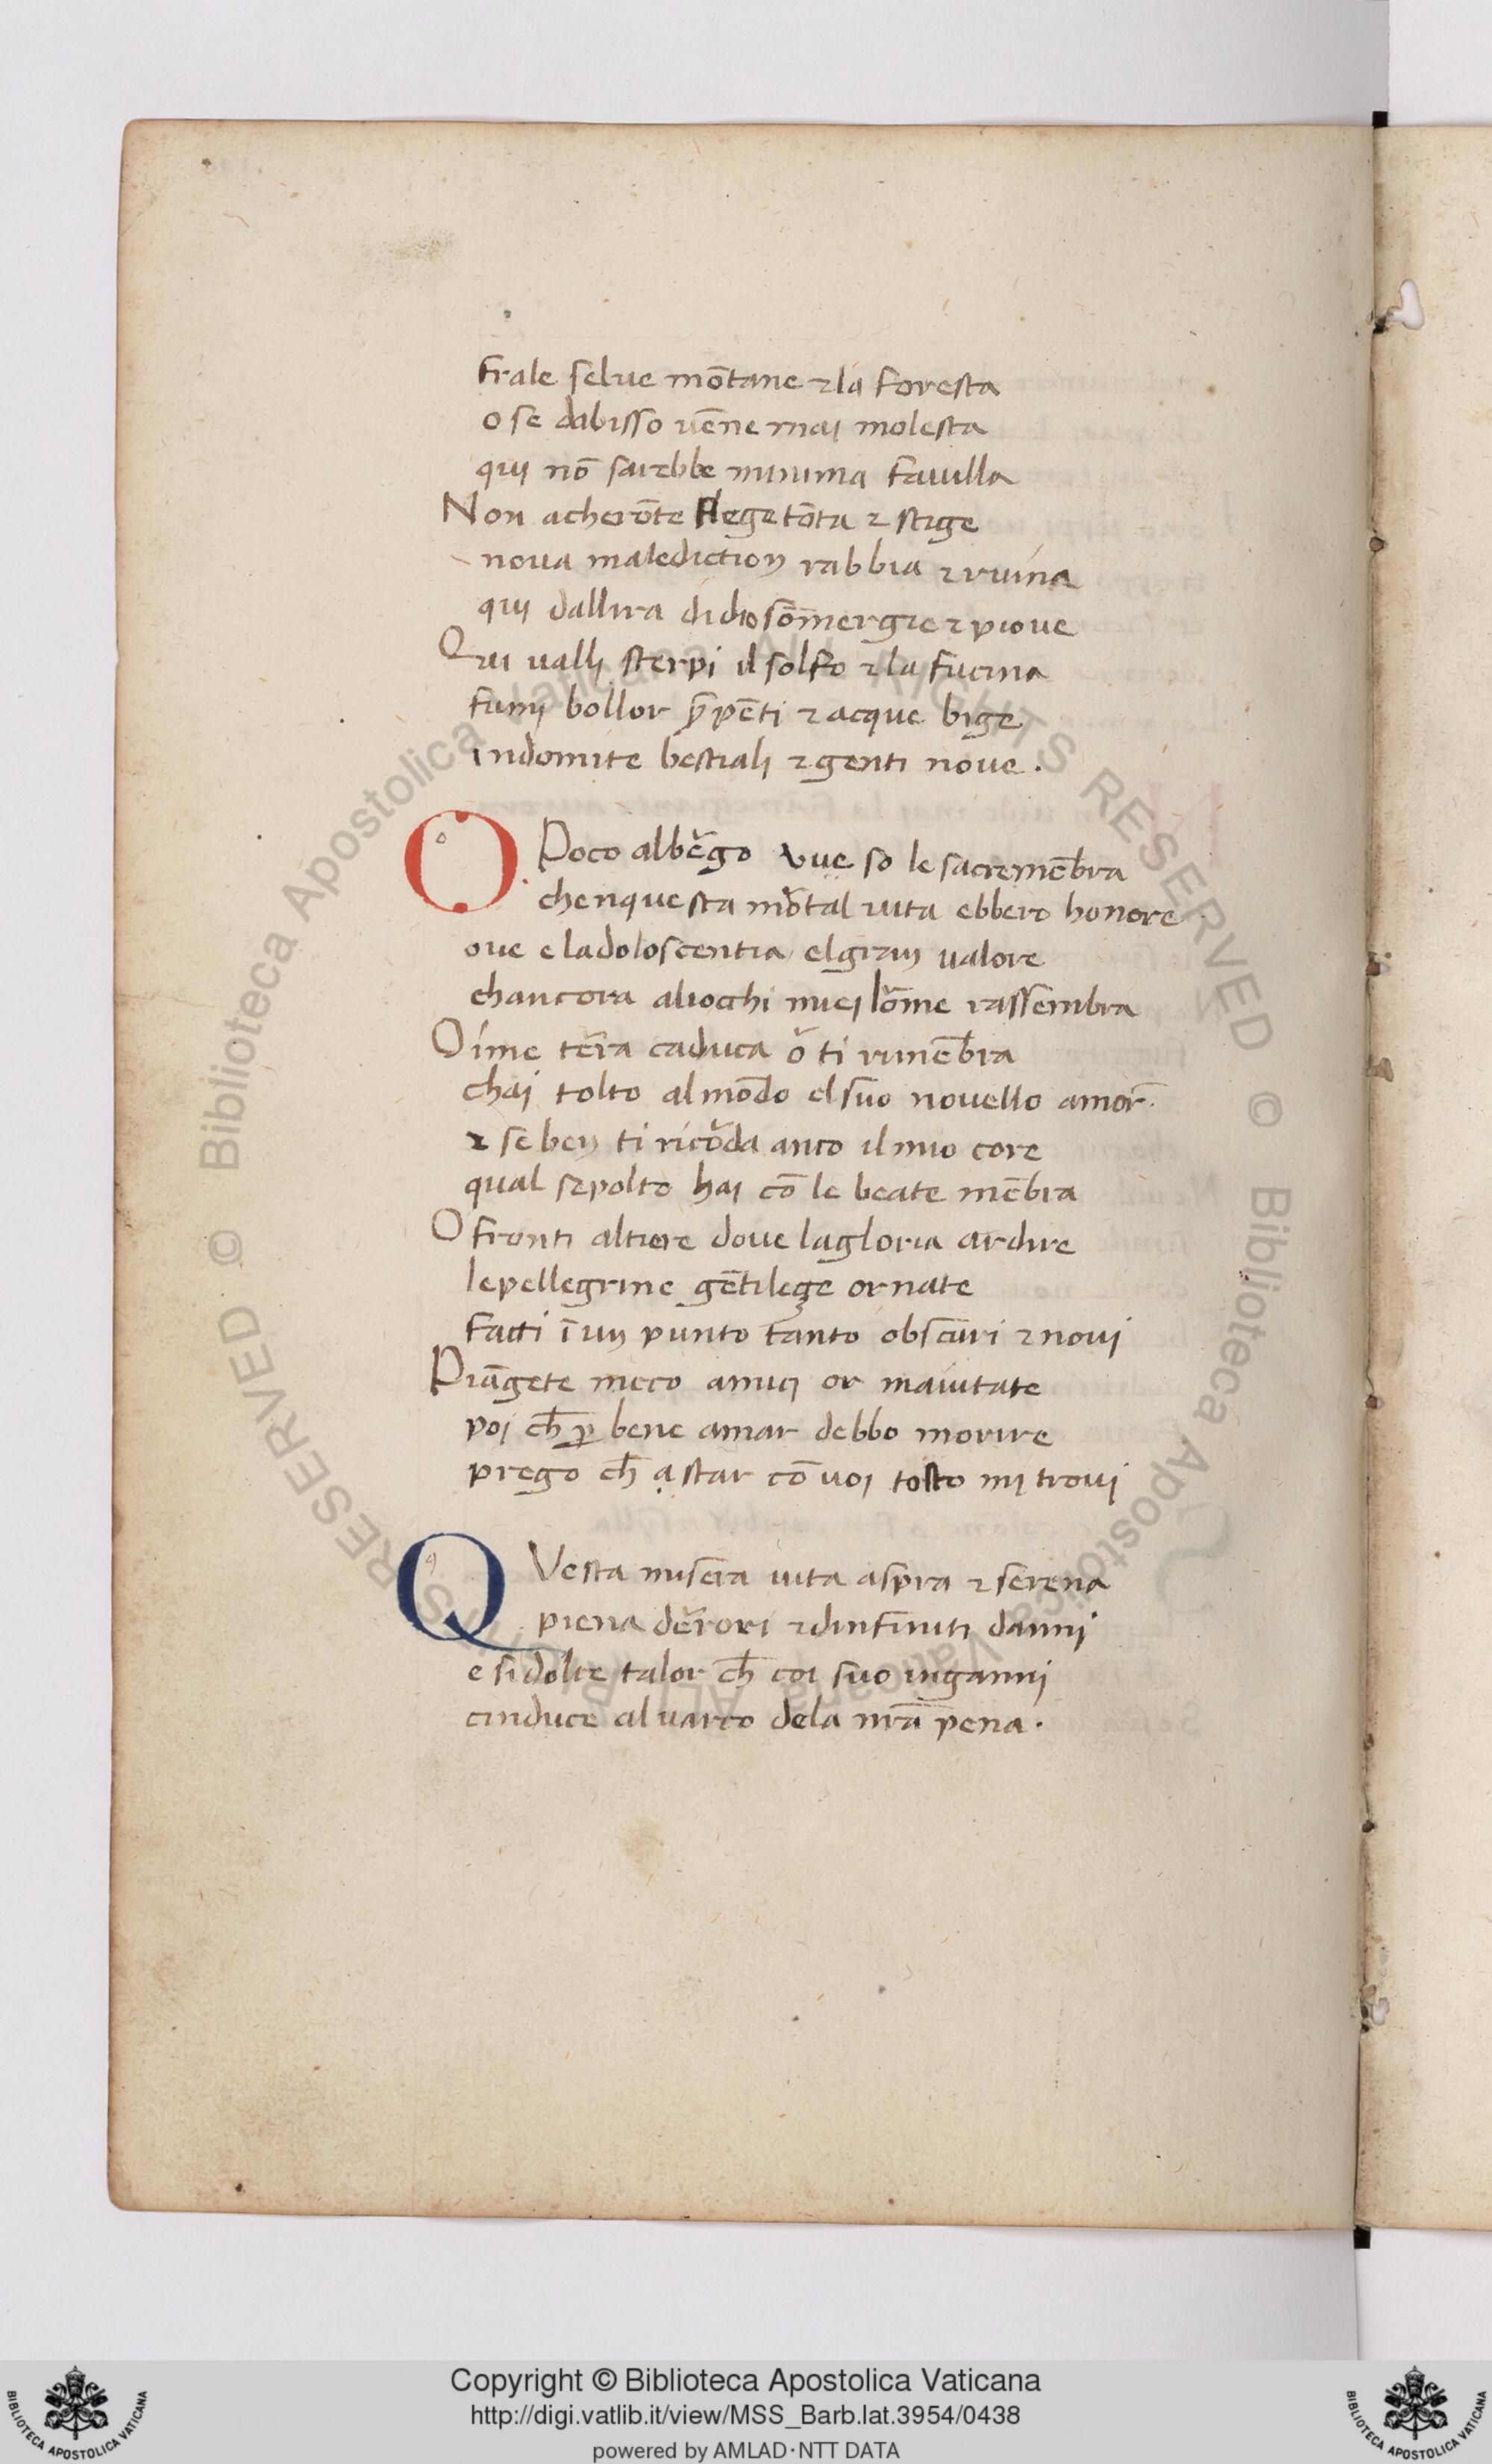 frale selue mōtane ⁊ la foresta
o se dabisso uēne mai molesta
qui nō sarebbe minima fauilla
Non acherōte flegetōta ⁊ stige
noua malediction rabbia ⁊ ruina
qui dallira didio sōmergie ⁊ pioue
Qui ualli sterpi il solfo ⁊ la fucina
fumi bollor p̄pēti ⁊ acque bige
indomite bestiali ⁊ genti noue.
O Poco albērgo oue so le sacre mēbra
chenquesta mōrtal uita ebbero honore
oue e ladoloscentia el gran ualore
chancora aliocchi miei lōrme rassembra
Oime tēra caduca ōr ti rimēbra
chai tolto al mōdo el suo nouello amor̄.
⁊ se ben ti ricōrda anco il mio core
qual sepolto hai cō le beate mēbra
O fronti altiere doue lagloria ardire
lepellegrine gētileçe ornate
facti ī un punto tanto obscuri ⁊ noui
Piāgete meco amici or maiutate
poi ch̄ ꝑ bene amar debbo morire
prego ch̄ a star cō uoi tosto mi troui
QVesta misera uita aspra ⁊ serena
piena dērrori ⁊ dinfiniti danni
e si dolce talor ch̄ coi suo inganni
cinduce al uarco dela nr̄a pena.
Copyright © Biblioteca Apostolica Vaticana
http://digi.vatlib.it/view/MSS_Barb.lat.3954/0438
powered by AMLAD·NTT DATA
BIBLIOTECA APOSTOLICA VATICANA
BIBLIOTECA APOSTOLICA VATICANA
© Biblioteca Apostolica Vaticana ALL RIGHTS RESERVED
© Biblioteca Apostolica Vaticana ALL RIGHTS RESERVED